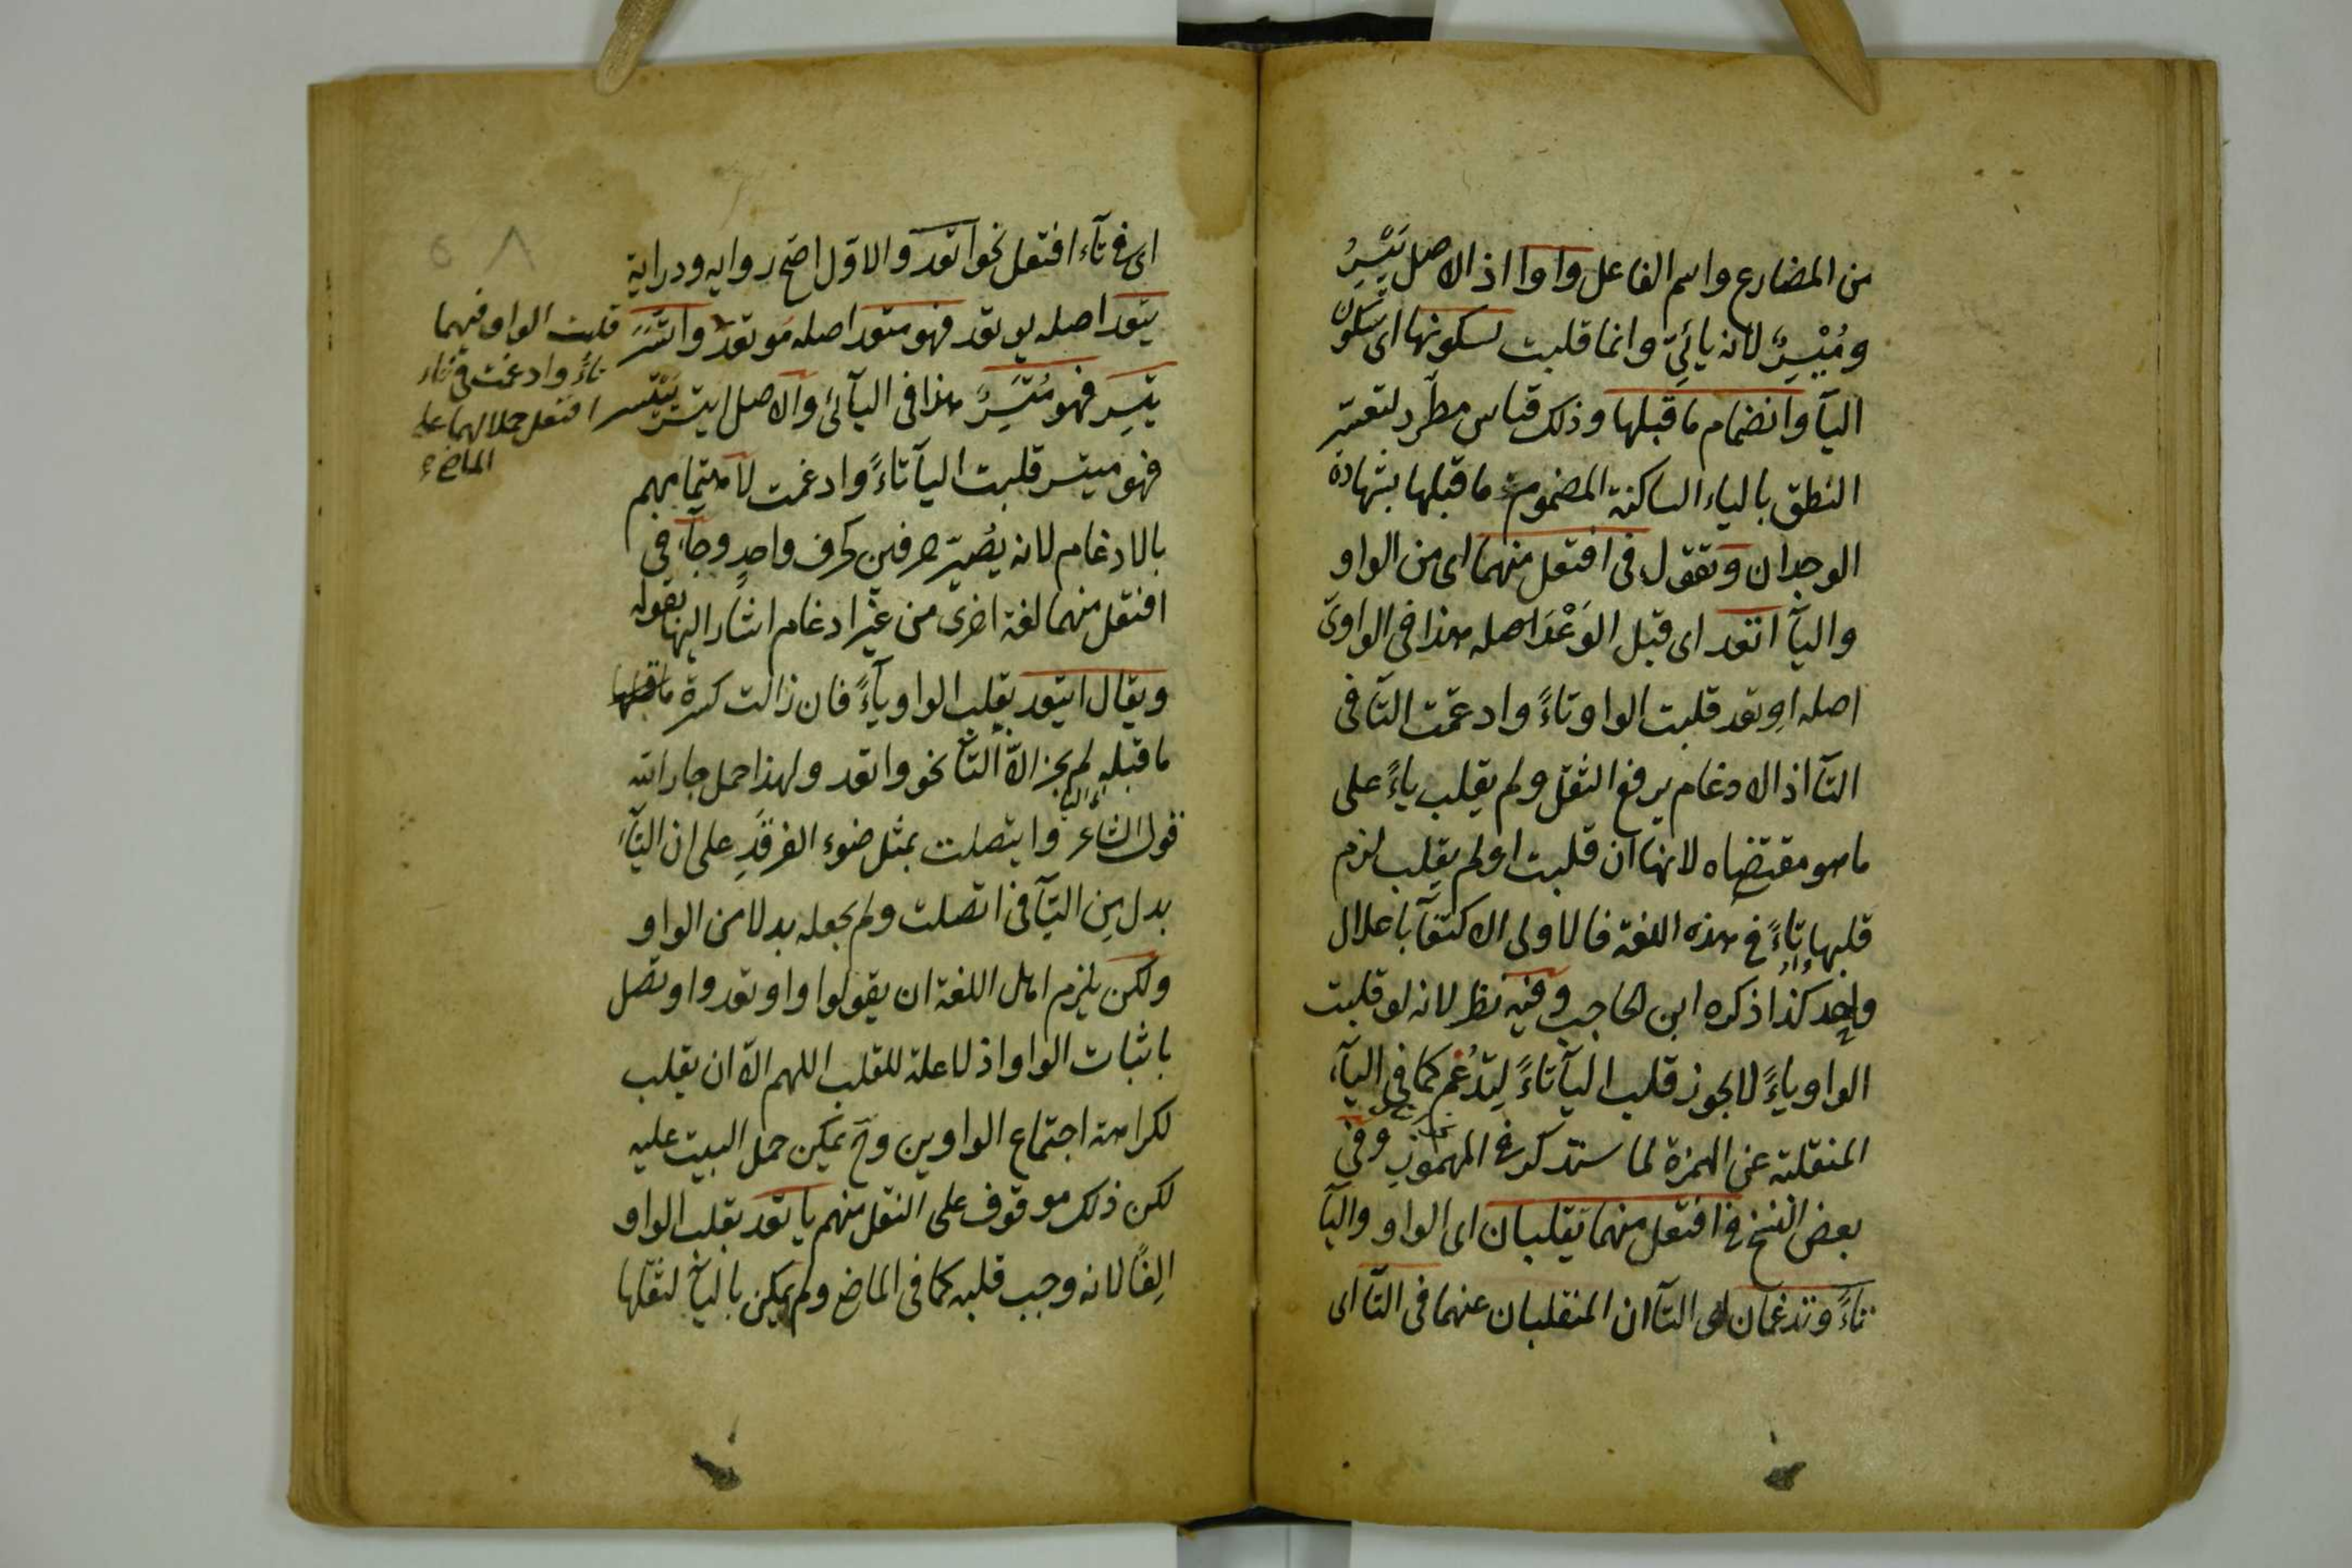 من المضارع واسم الفاعل واوا اذ الاصل يُيْسِرُ
ومُيْسِرٌ لانه يائيّ وانما قلبت لسكونها اى سكون
اليآ وانضمام ما قبلها وذلك قياس مطّرد لتعسّر
النطق بالياء الساكنة المضموم ما قبلها بشهادة
الوجدان وتقول فى افتعل منهما اى من الواو
واليآ اتعد اى قبل الوَعْدَ اصله هذا فى الواوىّ
اصله اوتعد قلبت الواو تاءً وادغمت التآ فى
التآ اذ الادغام يرفع الثقل ولم يقلب ياءً على
ما هو مقتضاه لانها ان قلبت اولم يقلب لزم
قلبها تاءً فى هذه اللغة فالاولى الاكتفآ باعلال
واحد كذا ذكره ابن الحاجب وفيه نظر لانه لو قلبت
الواو ياءً لا يجوز قلب اليآ تاءً ليُدْغم كما فى اليآء
المنقلبة عن الهمزة لما سنذكر فى المهموز وفى
بعض النسخ فى افتعل منهما تقلبان اى الواو واليآ
تاءً وتدغمان اى التاآن المنقلبان عنهما فى التآ اى
اى فى تآء افتعل نحو اتعد والاوّل اصحّ رواية ودراية
يتّعد اصله يوتعد فهو متعد اصله موتعد واتّسَرَ
يتّسِر فهو مُتّسِرٌ هذا فى اليآئى والاصل ايتسر ييتسر
فهو ميتسر قلبت اليآ تاءً وادغمت لاهتمامهم
بالادغام لانه يُصيّر حرفين كحرف واحدٍ وجآء فى
افتعل منهما لغة اخرى من غير ادغام اشار اليها بقوله
ويقال ايتعد بقلب الواو يآءً فان زالت كسرة ما قبلها
ما قبله لم يجز الّا التآ نحو واتعد ولهذا حمل جار الله
قول الشاعر وايتصلت بمثل ضوء الفرقدِ على ان اليآء
بدل من التآ فى اتصلت ولم يجعله بدلا من الواو
ولكن يلزم اهل اللغة ان يقولوا واوتعد واوتصل
باثبات الواو اذ لا علة للقلب اللهم الّا ان يقلب
لكراهة اجتماع الواوين وح يمكن حمل البيت عليه
لكن ذلك موقوف على النقل منهم ياتعد بقلب الواو
الِفًا لانه وجب قلبه كما فى الماضى ولم يمكن باليآ لثقلها
قلبت الواو فيهما
تاءً وادغمت فى تاء
افتعل حملا لهما على
الماضى